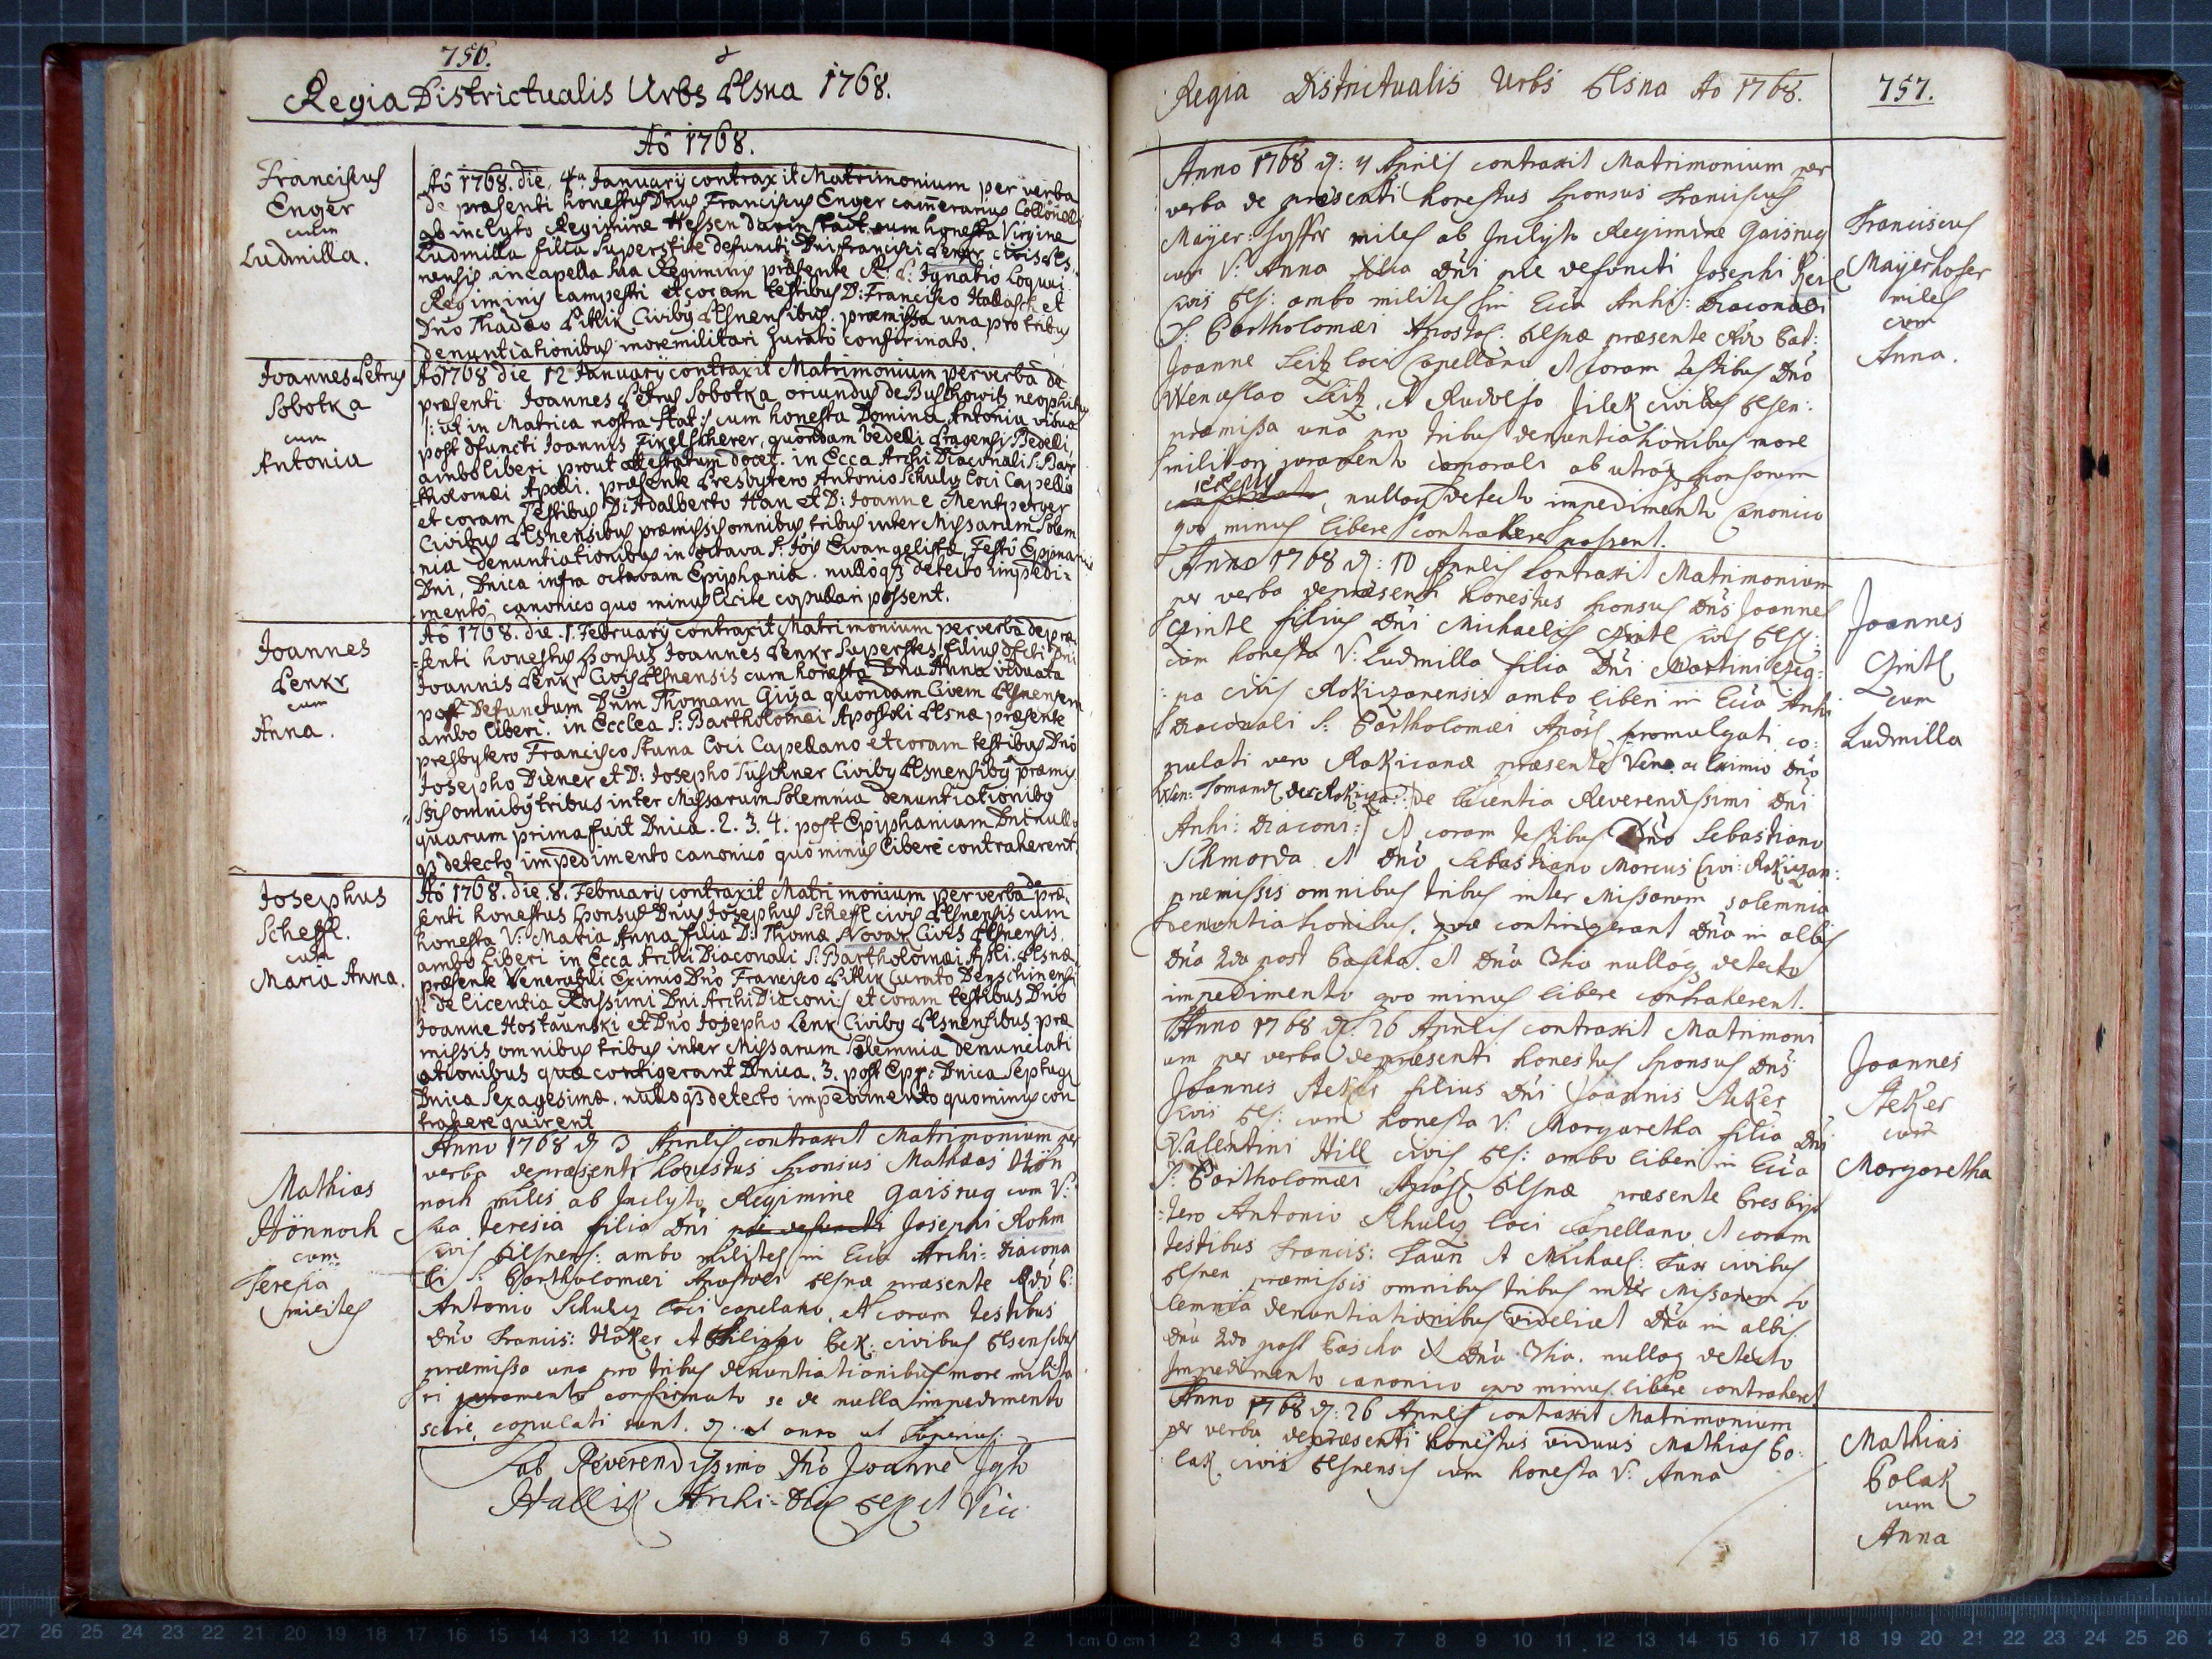 756.
Regia Districtualis Urbs Plsna 1768.
Aô 1768.
Franciscus
Enger
cum
Ludmilla.
Aô 1768. die, 4ta January contraxit Matrimonium per verba
de præsenti honestus Dnus Franciscus Enger camerarius Collonelli
ab inclyto Regimine Hessen darmstadt cum honesta Virgine
Ludmilla filia Superstite defuncti Dni Francisci Penkr civis Pls
nensis, in capella sua Regiminis præsente R: P: Ignatio Loquai
Regiminis campestri et coram testibus D: Francisco Hallasch et
Dno Thadæo Pitlik Civibus Plsnensibus. præmissa una pro tribus
denuntiationibus more militari Jurato confirmato.
Joannes Petrus
Sobotka
cum
Antonia
Aô 1768 die 12 January contraxit Matrimonium per verba de
præsenti Joannes Petrus Sobotka oriundus de Buschowitz neophitus
/: ut in Matrica nostra Stat :/ cum honesta Domina Antonia vidua
post dfuncti Joannis Zirglscherer, quondam bedelli Pragensis Bedelli,
ambo liberi prout attestatum docet. in Ecca Archi Diaconali S: Bar
tholomæi Apostoli. præsente Presbytero Antonio Schulz Loci Capello
et coram Testibus D: Adalberto Han et D: Joanne Mentzperger
Civibus Plsnensibus præmissis omnibus tribus inter Missarum Solem
nia denuntiationibus in octava S: Jois Evangelistæ, Festo Epipha
Dni, Dnica infra octavam Epiphania. nulloq3 detecto impedi=
mento canonico quo minus licite copulari possent.
Joannes
Penkr
cum
Anna.
Aô 1768. die. 1. February contraxit Matrimonium per verba de præ
=senti honestus Sponsus Joannes Penkr Superstes filius dfcti Dni
Joannis Penkr Civis Plsnensis cum honesta Dna Anna viduata
post Defunctum Dnum Thomam Giza quondam Civem Plsnensem
ambo liberi. in Ecclea S: Bartholomæi Apostoli Plsnæ præsente
presbytero Francisco Stuna Loci Capellano et coram testibus Dno
Josepho Diener et D: Josepho Tuschner Civiby Plsnensiby præmis
sis omniby tribus inter Missarum Solemnia denuntiationiby
quarum prima fuit Dnica. 2. 3. 4. post Epiphaniam Dni nullo
q3 detecto impedimento canonico quo minus libere contraherent.
Josephus
Scheffl.
cum
Maria Anna.
Aô 1768. die. 8. February contraxit Matrimonium per verba de præ.
senti honestus Sponsus Dnus Josephus Scheffl civis Plsnensis cum
honesta V: Maria Anna filia D: Thomæ Novak Civis Plsnensis.
ambo liberi in Ecca Archi Diaconali S: Bartholomæi Apli. Plsnæ
præsente Venerabili Eximio Dno Francisco Pitlik Curato Deyschinensi
/: de licentia Rssimi Dni Archi Diaconi :/ et coram testibus Dno
Joanne Hostaunski et Dno Josepho Penk Civiby Plsnensibus præ
missis omnibus tribus inter Missarum Solemnia denunciati
ationibus quæ contigerant Dnica. 3. post Epp: Dnica Septuag
Dnica Sexagesimæ. nulloq3 detecto impedimento quo minus con
trahere quirent
Mathias
Hönnoch
cum
Teresia
milites
Anno 1768 d 3 Aprilis contraxit Matrimonium per
verba de præsenti honestus Sponsus Mathæas Hön
noch miles ab Inclyto Regimine Gaisrug cum V:
sua Teresia filia Dni pie defuncti Josephi Rohm
civis Pilsnens: ambo milites in Ecca Archi: Diacona
li S: Bartholomæi Apostoli Plsnæ præsente Rdo P:
Antonio Schulz loci capelano. et coram testibus
Dno Francis: Hoker et Philippo Bek: civibus Plsensibus
præmissa una pro tribus denuntiationibus more milita
ri juramento confirmato se de nulla impedimento
scire, copulati sunt. d. et anno ut Superius.
Sub Reverendissimo Dno Joanne Igto
Hallik Archi=Dno Pls et Vic
Regia Districtualis Urbs Plsna Aô 1768.
757.
Anno 1768 d: 4 Aprilis contraxit Matrimonium per
verba de præsenti honestus Sponsus Franciscus
Mayer: hoffer miles ab Inclyto Regimine Gaisrug
cum V: Anna filia Dni pie defuncti Josephi
civis Pls: ambo milites in Ecca Archi: Diaconali
S: Bartholomæi Apostol: Plsnæ præsente Adm Pat:
Joanne Seitz loci Capellano et coram testibus Dno
Wenceslao Seitz, et Rudolfo Jilek civibus Plsen:
præmissa una pro tribus denuntiationibus more
militari juramento corporali ab utroq3 sponsorum
nulloq3 detecto impedimento canonico
quo minus libere contrahere possent.
Franciscus
Mayerhoffer
miles
cum
Anna.
Anno 1768 d: 10 Aprilis contraxit Matrimonium
per verba de præsenti honestus sponsus Dnus Joannes
Czintl filius Dni Michaelis Czintl civis Pls:
cum honesta V: Ludmilla filia Dni Martini
na civis Rokizanensis ambo liberi in Ecca Archi
Diaconali S: Bartholomæi Apost promulgati, co:
pulati vero Rokicanæ præsente Ven. ac Eximio Dno
Wen: Tomand, Dec: Rokiza: de licentia Reverendissimi Dni
Archi: Diaconi:/ et coram testibus Dno Sebastiano
Schmorda et Dno Sebastiano Morcus Civi: Rokizan:
præmissis omnibus tribus inter Missarum solemnia
denuntiationibus, quæ contingerant Dna in albis
Dna 2da post Pascha. et Dna 3tia nulloq3 detecto
impedimento quo minus libere contraherent.
Joannes
Czintl
cum
Ludmilla
Anno 1768 d: 26 Aprilis contraxit Matrimoni
um per verba de præsenti honestus Sponsus Dnus
Joannes Steker filius Dni Joannis Steker
civis Pls: cum honesta V: Margaretha filia Dni
Valentini Hill civis Pls: ambo liberi in Ecca
S: Bartholomæi Apost Plsnæ præsente Presbyt
=tero Antonio Schulz loci Capellano, et coram
testibus Francis: Taun et Michael: Fux civibus
Plsnen præmissis omnibus tribus inter Missarum so
lemnia denuntiationibus videlicet Dna in albis.
Dna 2da post Pascha et Dna 3tia. nulloq3 detecto
Impedimento canonico quo minus libere contraheret
Joannes
Steker
cum
Margaretha
Anno 1768 d: 26 Aprilis contraxit Matrimonium
per verba de præsenti honestus viduus Mathias Po:
lak civis Plsnensis cum honesta V: Anna
Mathias
Polak
cum
Anna